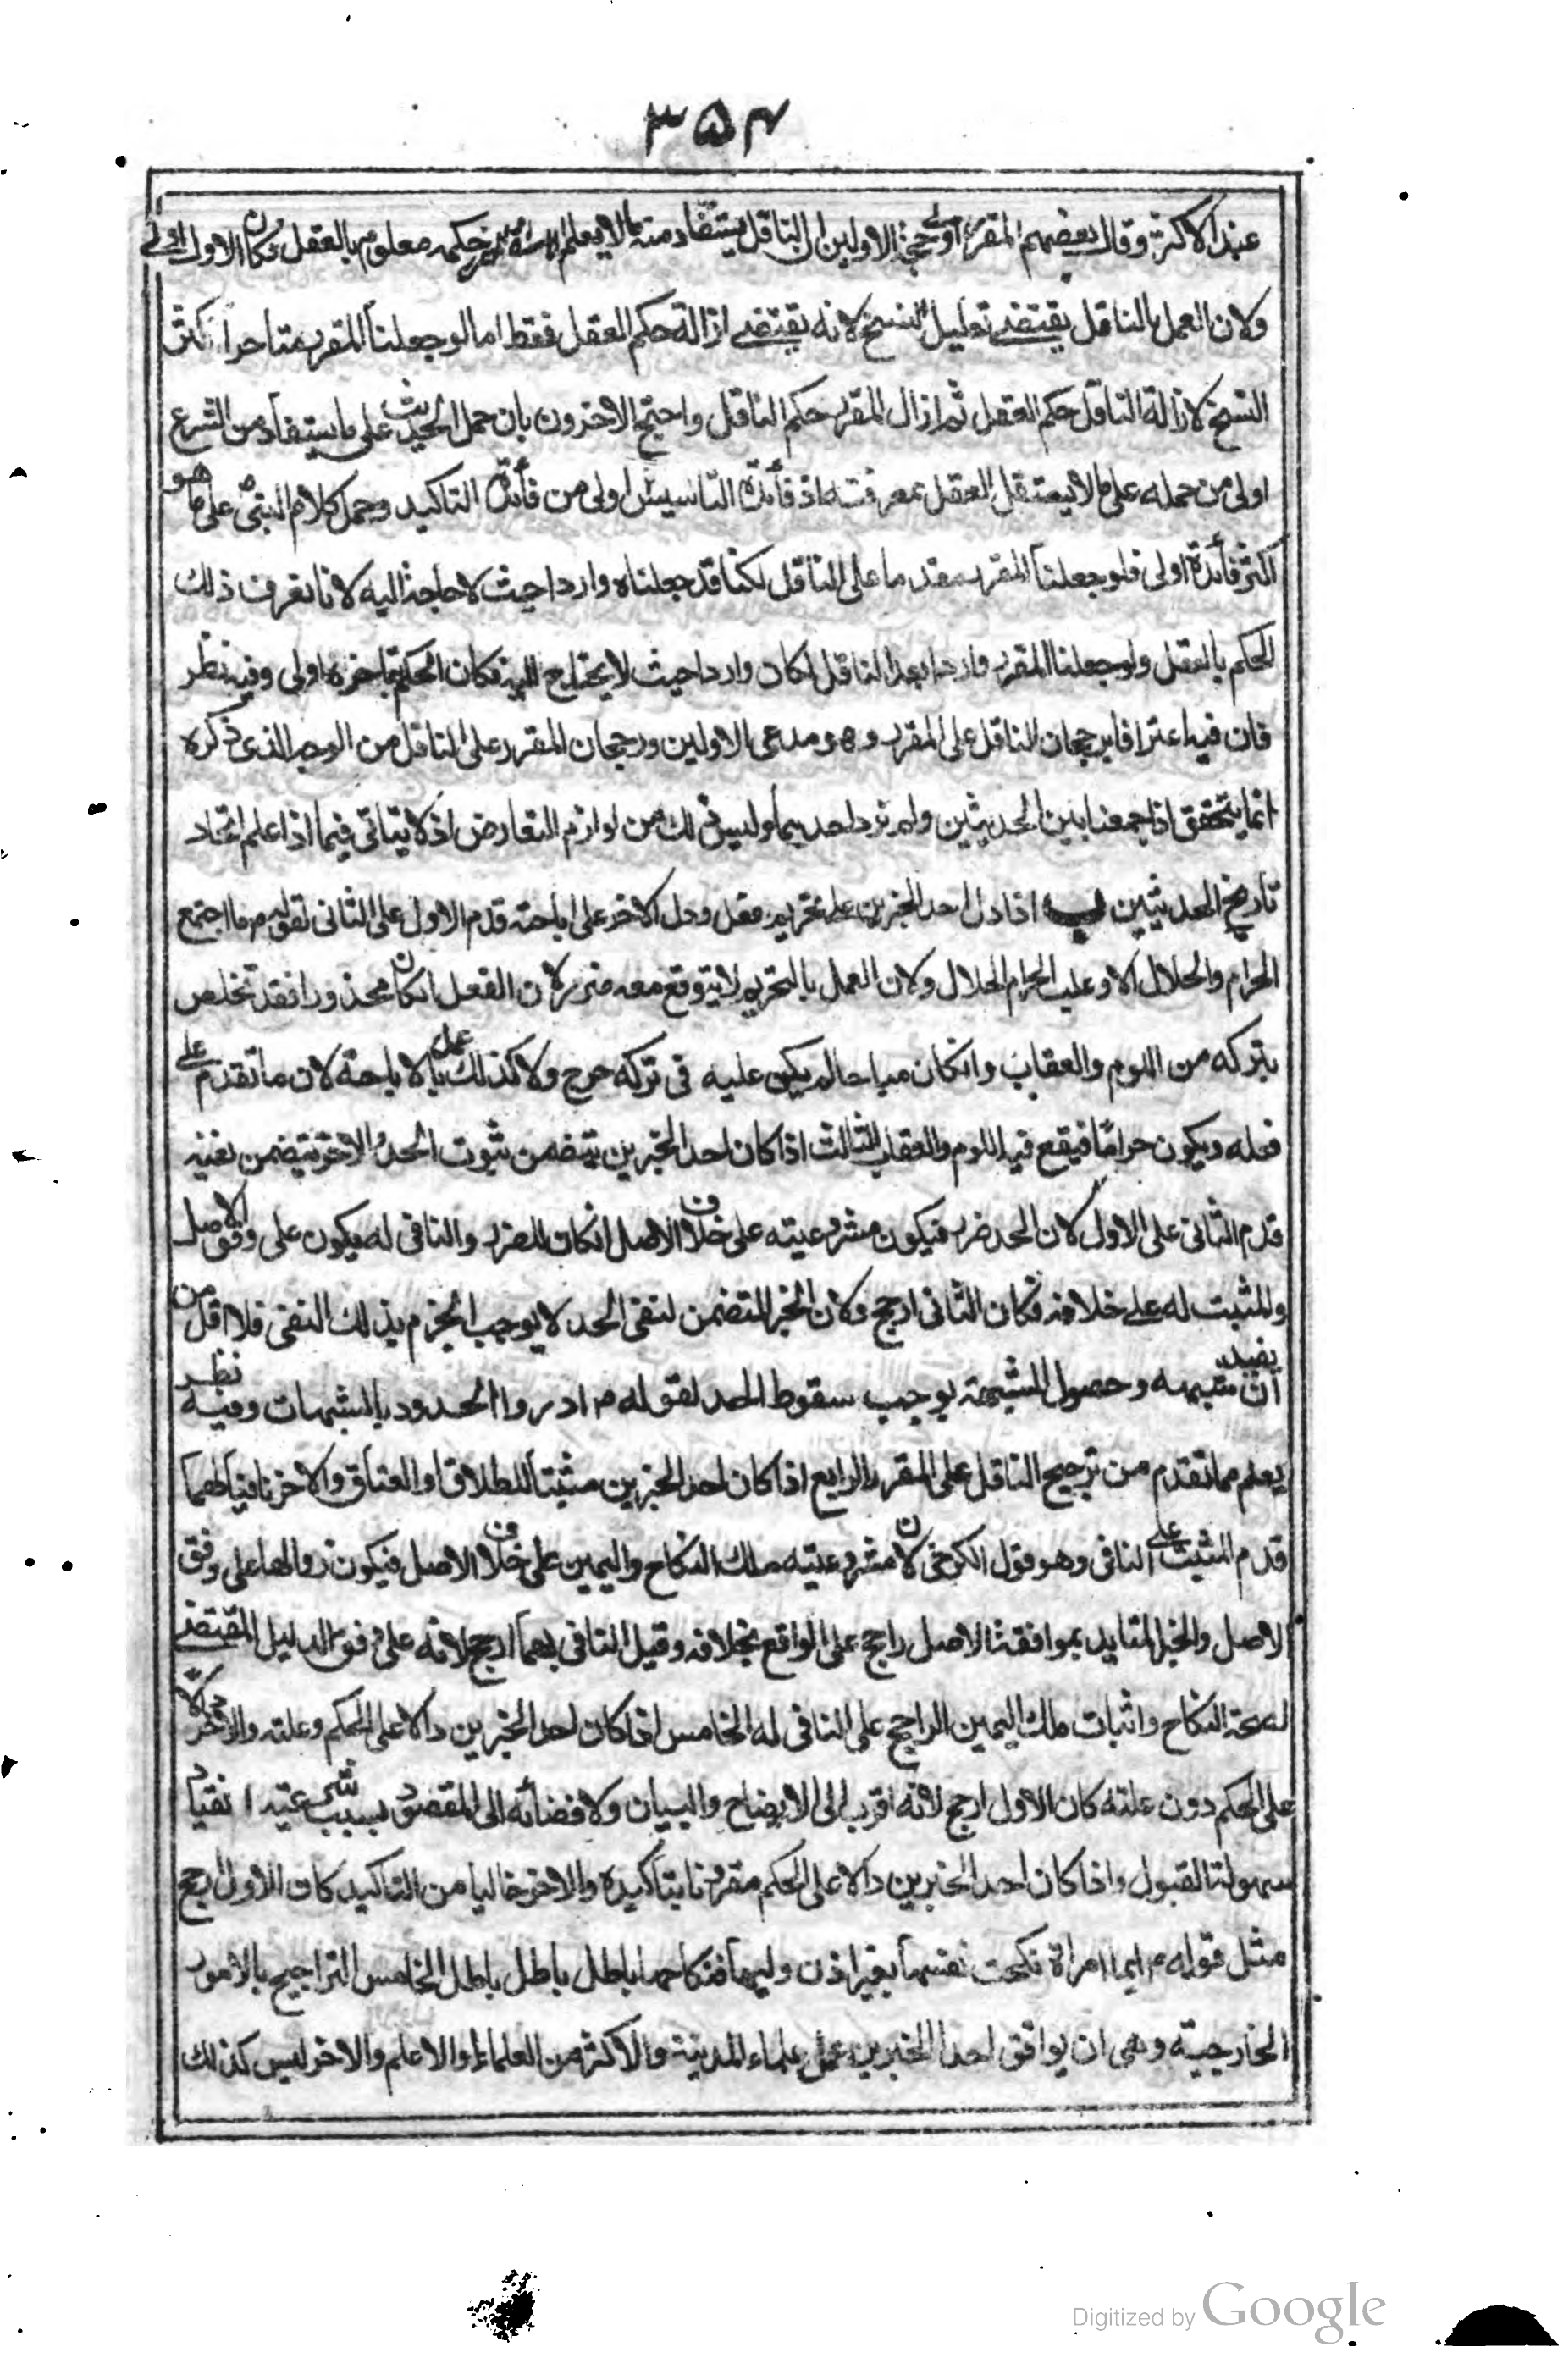 ۳۵۴
عند الاكثر وقال بعضهم المقرر اولى حجة الاولين ان الناقل يستفاد منه ما لا يعلم الا منه حكمه معلوم بالعقل فكان الاول اولى
ولان العمل بالناقل يقتضى تقليل النسخ لانه يقتضى ازالة حكم العقل فقط اما لو جعلنا المقرر متاخرا تكثر
النسخ لازالة الناقل حكم العقل ثم ازال المقرر حكم الناقل واحتج الاخرون بان حمل الحديث على ما يستفاد من الشرع
اولى من حمله على ما لا يستقل العقل بمعرفته اذ فائدة التاسيس اولى من فائدة التاكيد وحمل كلام النبى ص على ما هو
اكثر فائدة اولى فلو جعلنا المقرر مقدما على الناقل لكنا قد جعلناه واردا حيث لا حاجة اليه لانا نعرف ذلك
الحكم بالعقل ولو جعلنا المقرر واردا بعد الناقل لكان واردا حيث لا يحتاج اليه فكان الحكم بتاخره اولى وفيه نظر
فان فيه اعترافا برجحان الناقل على المقرر وهو مدعى الاولين ورجحان المقرر على الناقل من الوجه الذى ذكره
انما يتحقق اذا جمعنا بين الحديثين ولم نرد احدهما وليس ذلك من لوازم التعارض اذ لا يتاتى فيما اذا علم اتحاد
تاريخ الحديثين ب اذا دل احد الخبرين على تحريم فعل ودل الاخر على اباحته قدم الاول على الثانى لقوله م ما اجتمع
الحرام والحلال الا وغلب الحرام الحلال ولان العمل بالتحريم لا يتوقع معه ضرر لان الفعل ان كان محذورا فقد تخلص
بتركه من اللوم والعقاب وان كان مباحا لم يكن عليه فى تركه حرج ولا كذلك عمل بالاباحة لان ما تقدم على
فعله ويكون حراما فيقع فيه اللوم والعقاب الثالث اذا كان احد الخبرين يتضمن ثبوت الحد والاخر يتضمن نفيه
قدم الثانى على الاول لان الحد ضرر فيكون مشروعيته على خلاف الاصل اذ كان للضرر والنافى له يكون على وفق الاصل
والمثبت له على خلافه فكان الثانى ارجح ولان الخبر المتضمن لنفى الحد لا يوجب الجزم بذلك النفى فلا اقل من
ان يفيد شبهة وحصول الشبهة يوجب سقوط الحد لقوله م ادرءوا الحدود بالشبهات وفيه نظر
يعلم مما تقدم من ترجيح الناقل على المقرر الرابع اذا كان احد الخبرين مثبتا للطلاق او العتاق والاخر نافيا لهما
قدم المثبت على النافى وهو قول الكرخى لان مشروعيته ملك النكاح واليمين على خلاف الاصل فيكون زوالها على وفق
الاصل والخبر المتايد بموافقة الاصل راجح على الواقع بخلافه وقيل النافى لهما ارجح لانه على وفق الدليل المقتضى
لصحة النكاح واثبات ملك اليمين الراجح على النافى له الخامس اذا كان احد الخبرين دالا على الحكم وعلته والاخر دالا
على الحكم دون علته كان الاول ارجح لانه اقرب الى الايضاح والبيان ولافضائه الى المقصود بسبب
سهولة القبول واذا كان احد الخبرين دالا على الحكم مقرونا بتاكيده والاخر خاليا من التاكيد كان الاول ارجح
مثل قوله م ايما امراة نكحت نفسها بغير اذن وليها فنكاحها باطل باطل باطل الخامس التراجيح بالامور
الخارجية وهى ان يوافق احد الخبرين عمل علماء المدينة والاكثر من العلماء او الاعلم والاخر ليس كذلك
Digitized by Google